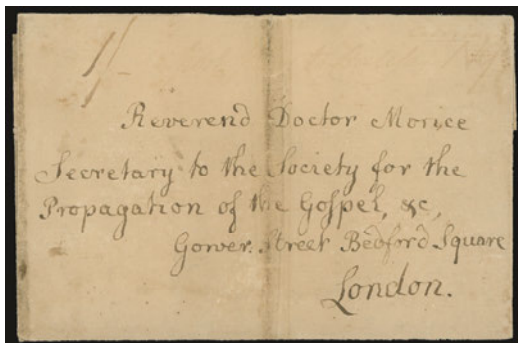 1/-
Reverend Doctor Morice
Secretary to the Society for the
Propagation of the Gospel, &c,
Gower Street Bedford Square
London.